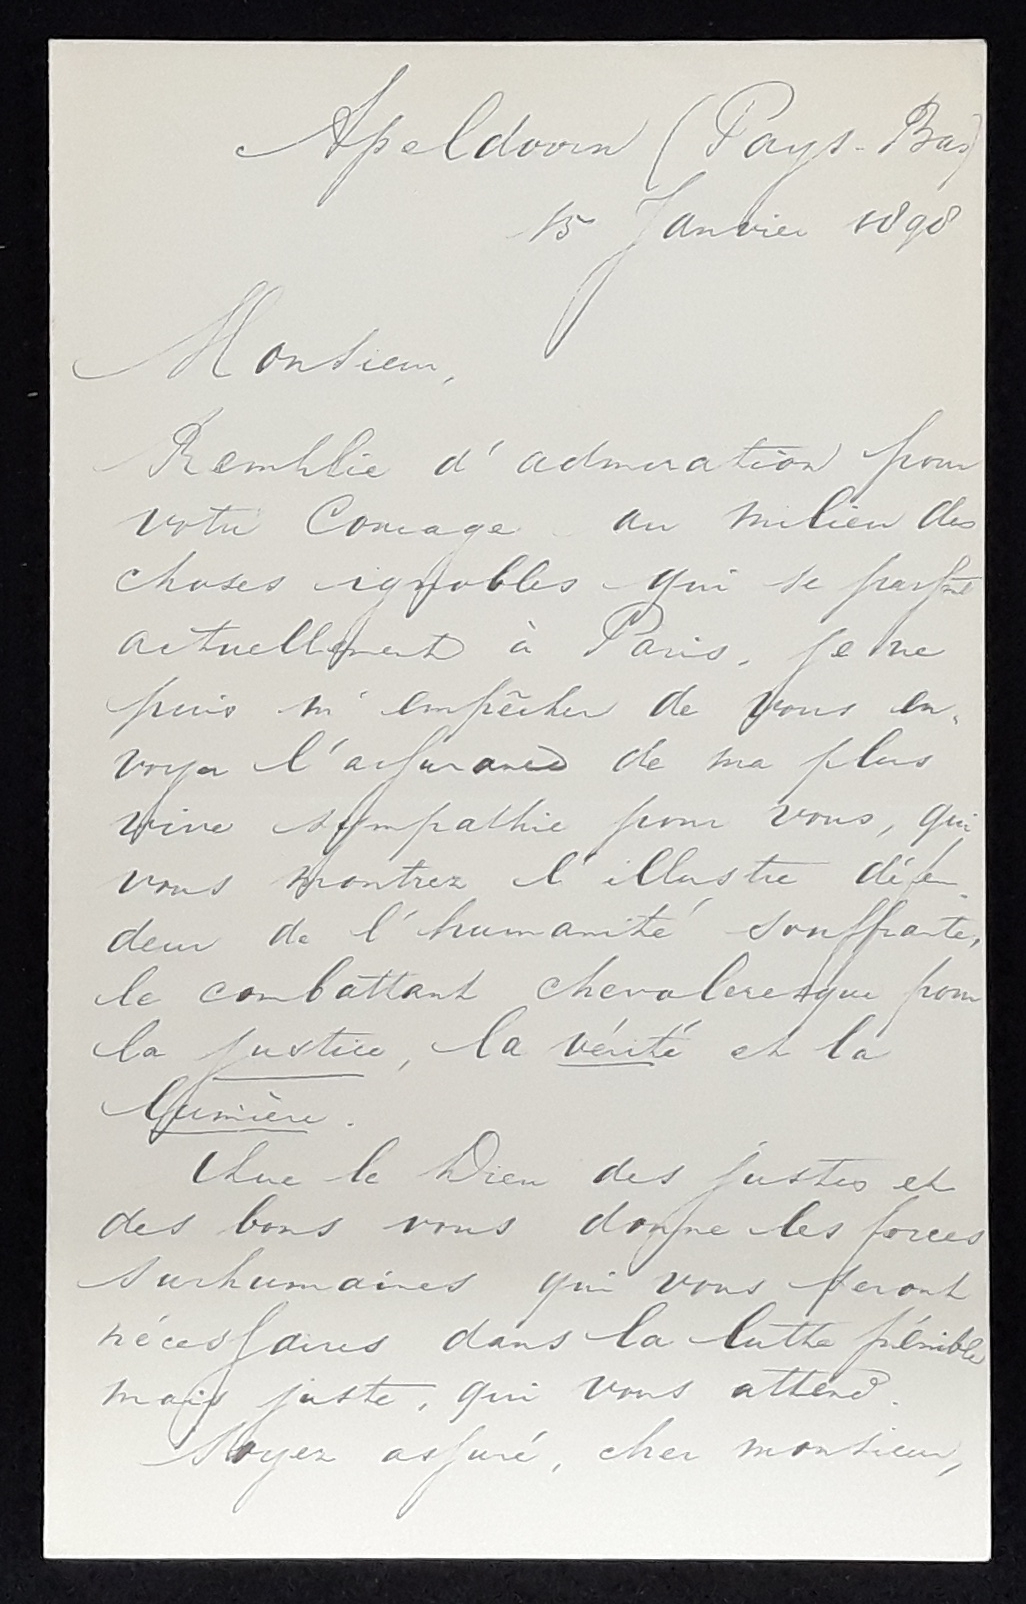 Apeldoorn (Pays-Bas)
15 Janvier 1898
Monsieur,
Remplie d'admiration pour
votre courage au milieu des
choses ignobles qui se passent
actuellement à Paris, je ne
puis m'empêcher de vous en-
voyer l'assurance de ma plus
vive sympathie pour vous, qui
vous montrez l'illustre défen-
deur de l'humanité souffrante,
le combattant chevaleresque pour
la justice, la vérité et la
lumière.
Que le Dieu des justes et
des bons vous donne les forces
surhumaines qui vous seront
nécessaires dans la lutte pénible
mais juste, qui vous attend.
Soyez assuré, cher monsieur,